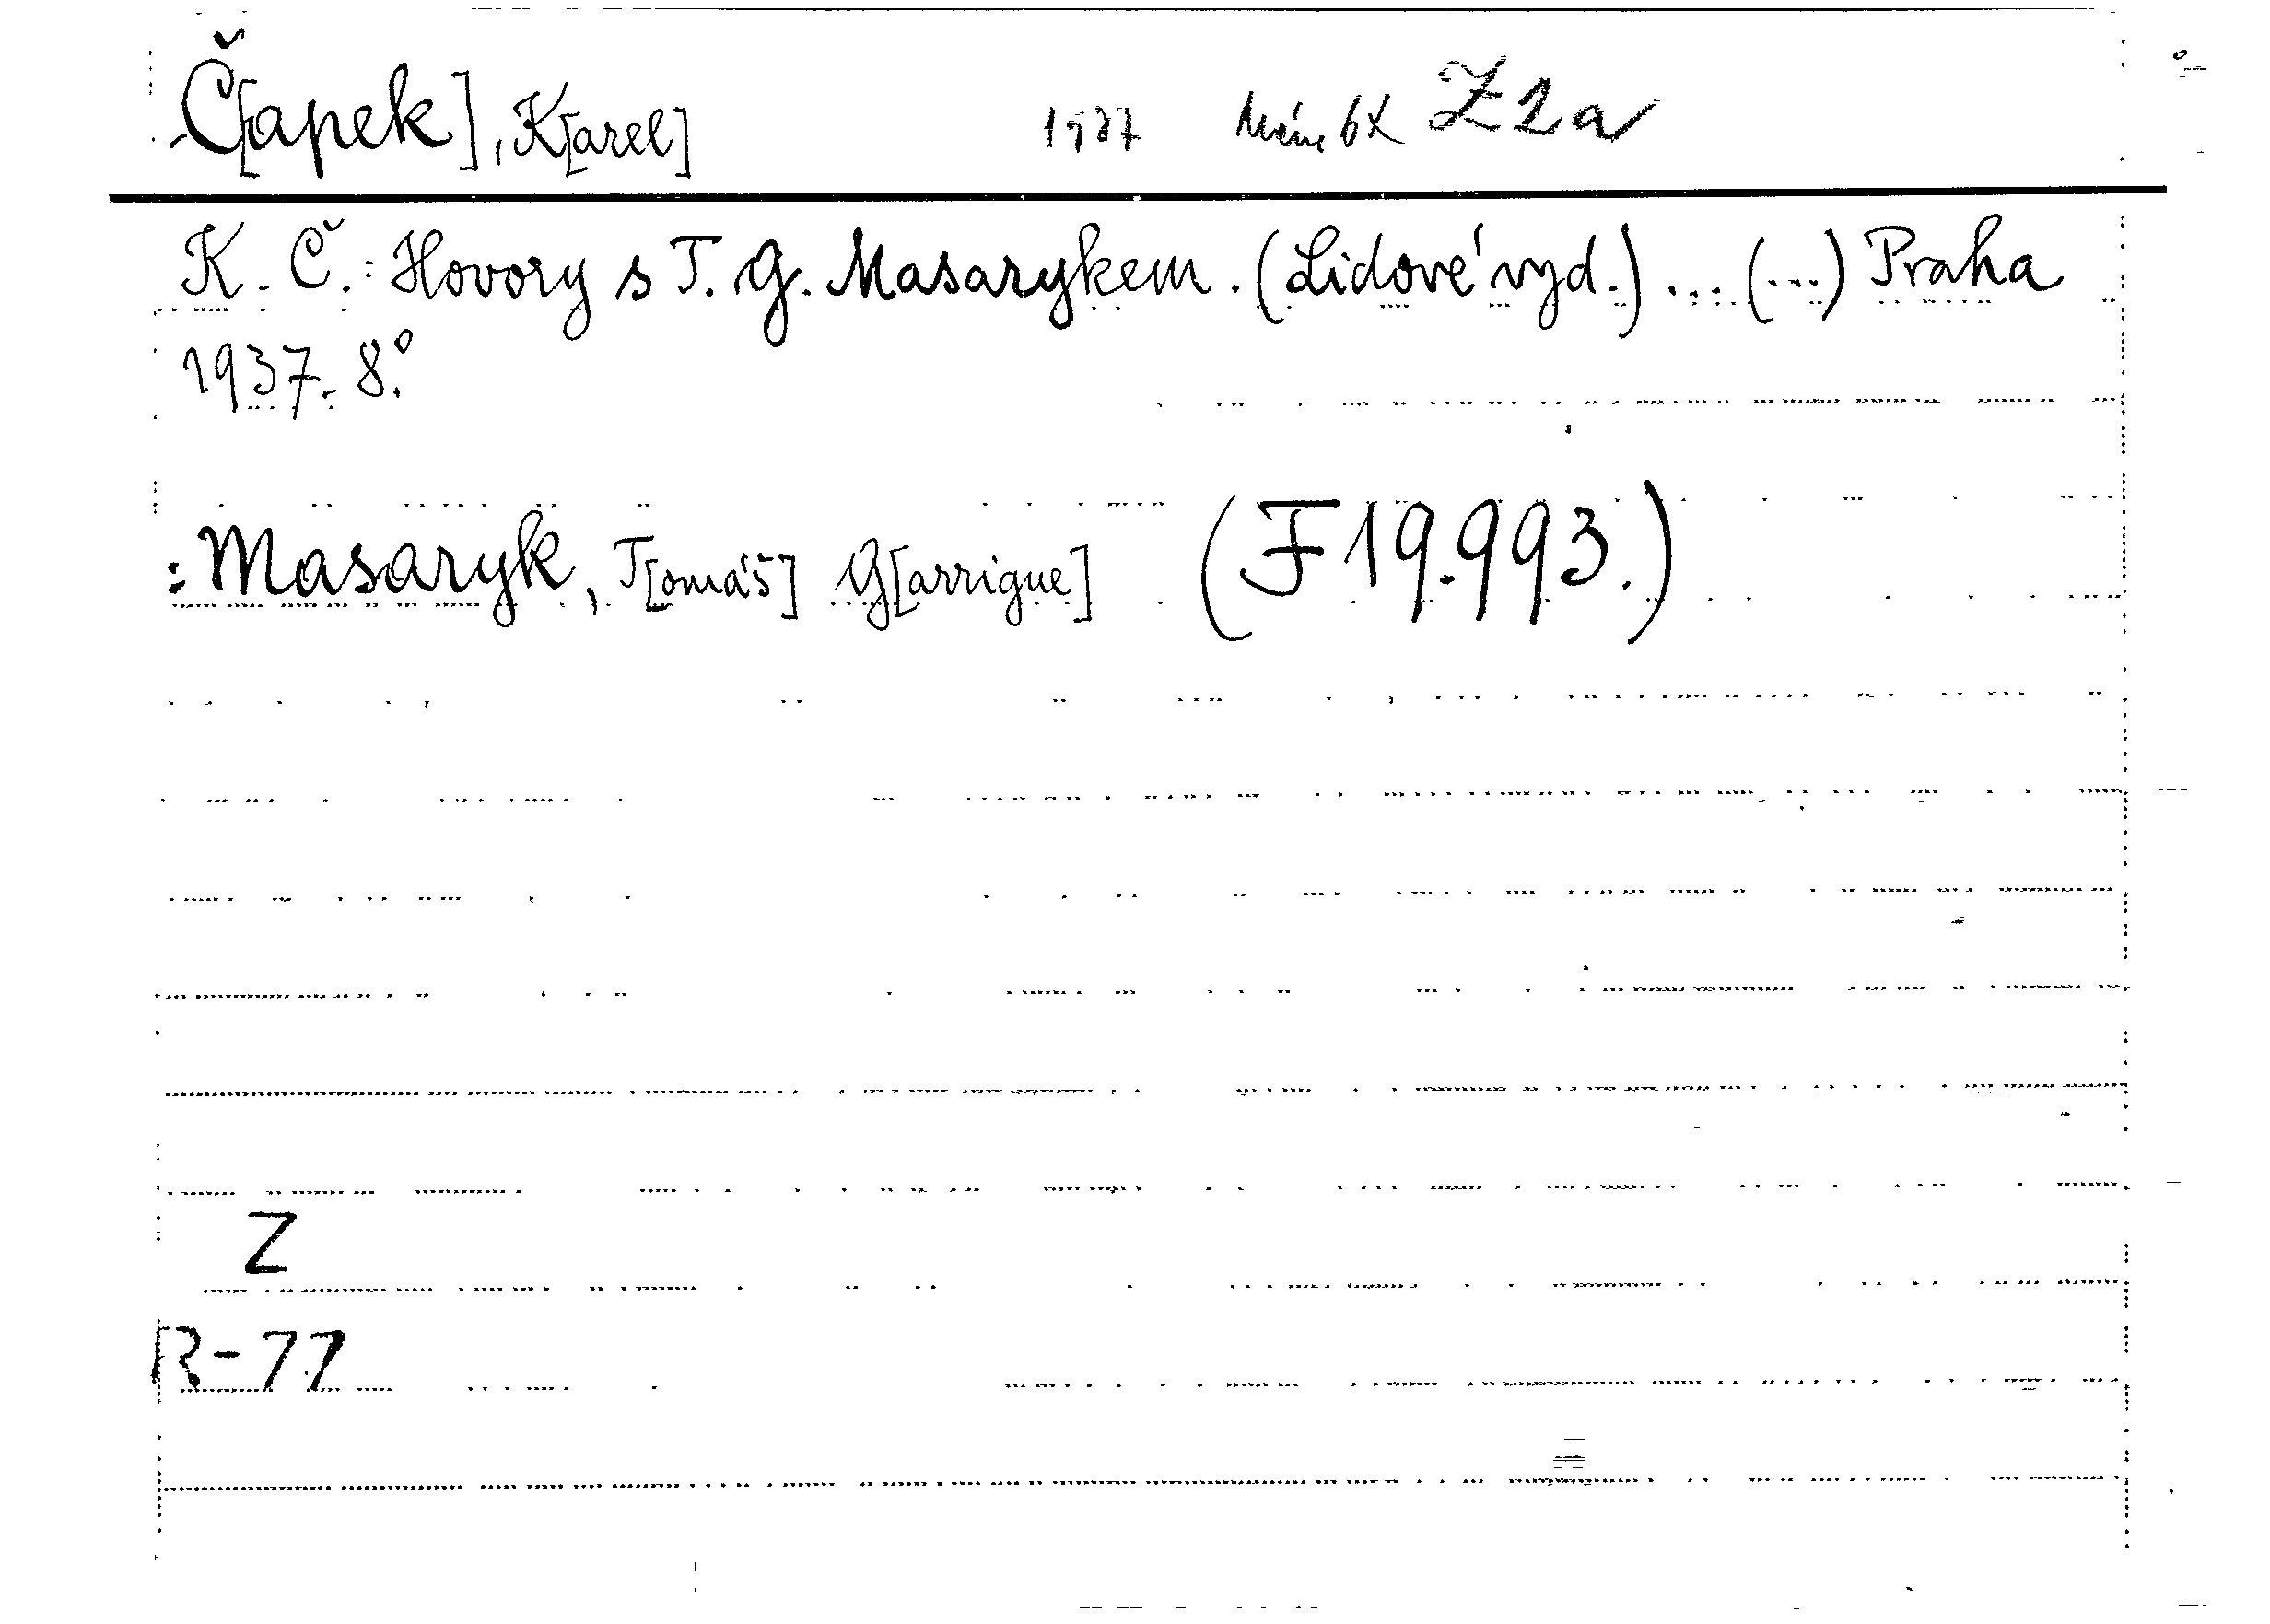 Č[apek], K[arel] 1937 Máme 6x Z2a
K. Č.: Hovory s T. G. Masarykem. (Lidové vyd.) ... (...) Praha
1937. 8.°
: Masaryk, T[omáš] G[arrigue] (F 19.993.)
Z
R-77